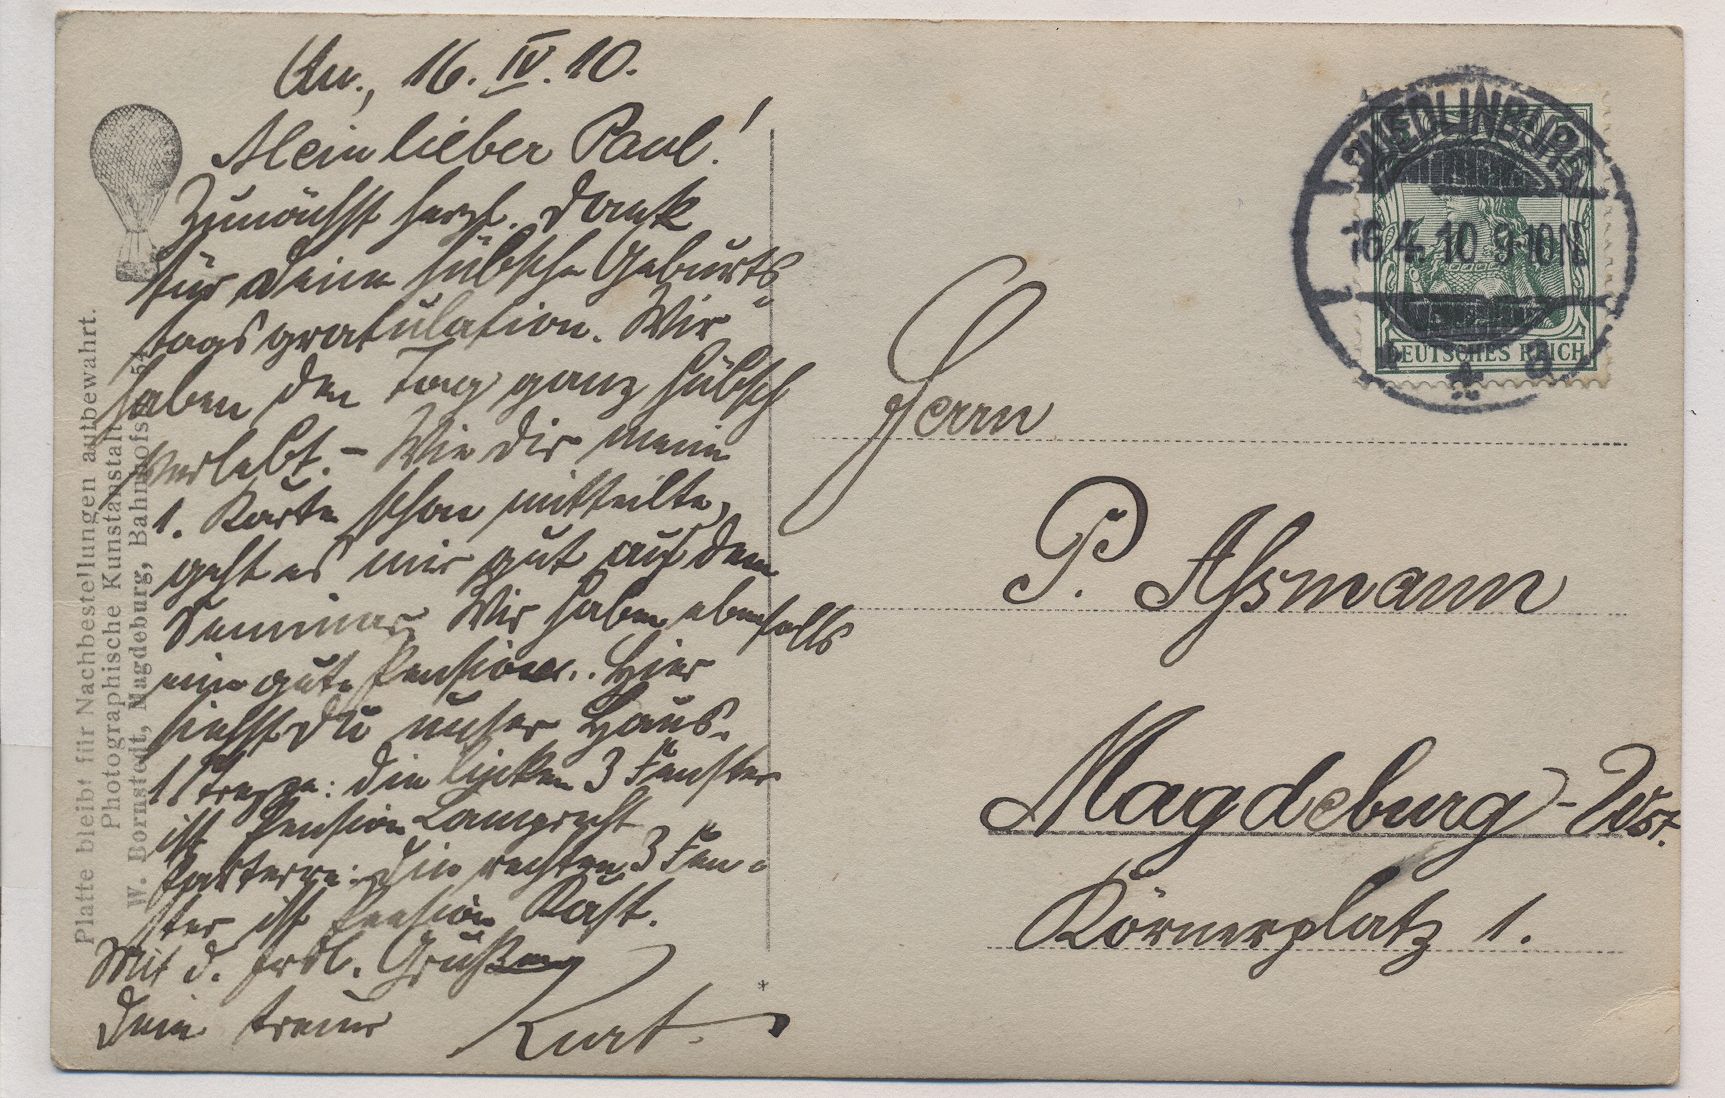 Qu., 16. IV. 10.
Mein lieber Paul!
Zunächst herzl. Dank
für Deine hübsche Geburts-
tagsgratulation. Wir
haben den Tag ganz hübsch
verlebt. – Wie Dir meine
1. Karte schon mitteilte,
geht es mir gut auf dem
Seminar. Wir haben ebenfalls
eine gute Pension. Hier
siehst Du unser Haus.
1 Treppe: die linken 3 Fenster
ist Pension Lamprecht
Parterre: die rechten 3 Fen-
ster ist Pension Kast.
Mit d. frdl. Grüßen
Dein treuer Kurt.
Platte bleibt für Nachbestellungen aufbewahrt.
Photographische Kunstanstalt
W. Bornstedt, Magdeburg, Bahnhofstr. 54
QUEDLINBURG
16.4.10 9-10N
* a
DEUTSCHES REICH
Herrn
P. Assmann
Magdeburg-Wst.
Körnerplatz 1.